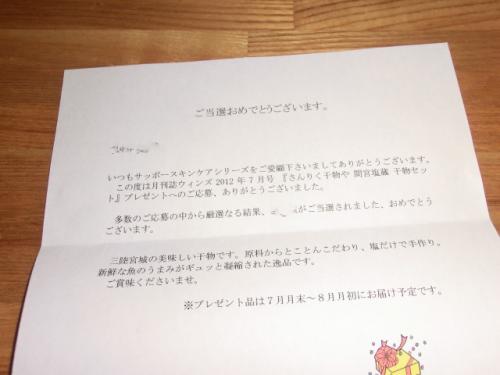 ご当選おめでとうございます。
いつもサッポースキンケアシリーズをご愛顧下さいましてありがとうございます。
この度は月刊誌ウィンズ2012年7月号『さんりく干物や 間宮塩蔵 干物セッ
ト』プレゼントへのご応募、ありがとうございました。
多数のご応募の中から厳選なる結果、がご当選されました、おめでとう
ございます。
三陸宮城の美味しい干物です。原料からとことんこだわり、塩だけで手作り。
新鮮な魚のうまみがギュッと凝縮された逸品です。
ご賞味くださいませ。
※プレゼント品は7月月末～8月月初にお届け予定です。